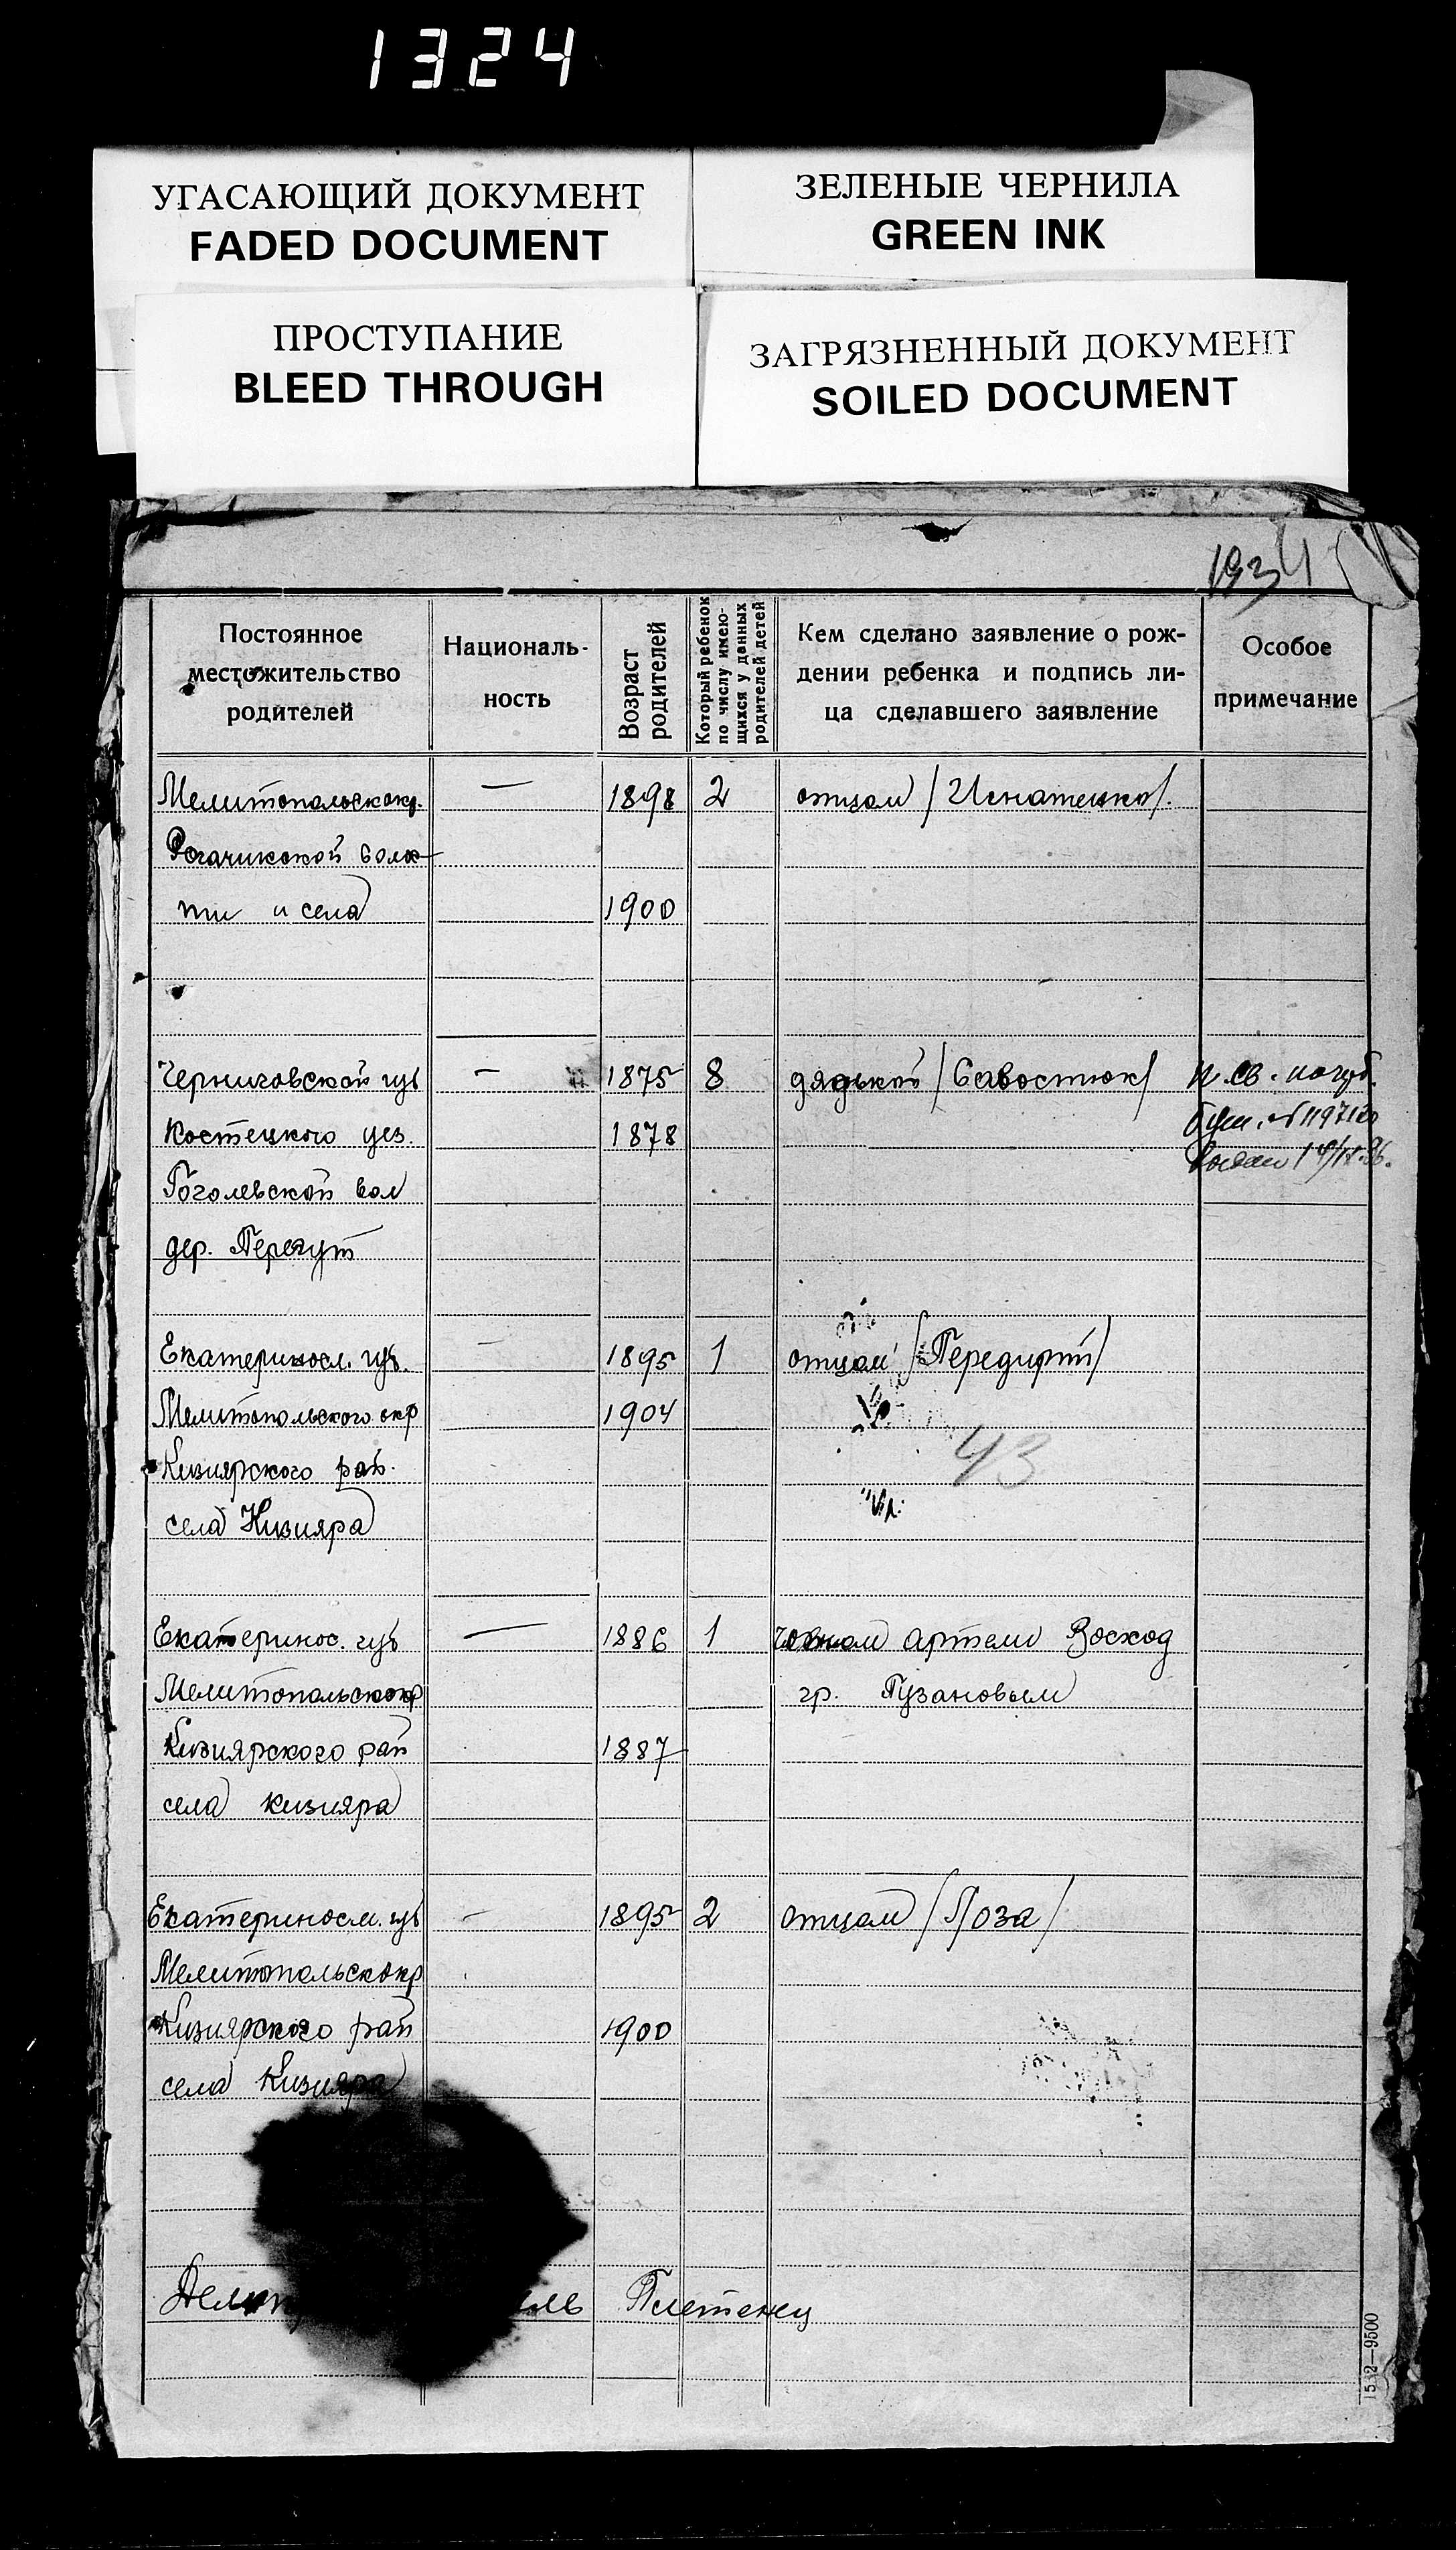 1324
УГАСАЮЩИЙ ДОКУМЕНТ
FADED DOCUMENT
ЗЕЛЕНЫЕ ЧЕРНИЛА
GREEN INK
ПРОСТУПАНИЕ
BLEED THROUGH
ЗАГРЯЗНЕННЫЙ ДОКУМЕНТ
SOILED DOCUMENT
1934
Постоянное
местожительство
родителей
Националь-
ность
Возраст
родителей
Который ребенок
по числу имею-
щихся у данных
родителей детей
Кем сделано заявление о рож-
дении ребенка и подпись ли-
ца сделавшего заявление
Особое
примечание
Мелитопольск окр. — 1898 2 отцом /Игнатенко/.
Рогачикской волос-
ти и села 1900
Черниговской губ — 1875 8 дядькой /Савостюк/ п. св. о
Костецкого уез. 1878
Гоголевской вол
дер. Перегут
Екатериносл. губ. — 1895 1 отцом /Передирий/
Мелитопольского окр 1904
43
Кизиярского рай.
села Кизияра
Екатеринос. губ — 1886 1 членом артели Восход
Мелитопольск окр гр. Пузановым
Кизиярского рай 1887
села Кизияра
Екатериносл. губ — 1895 2 отцом /Лоза/
Мелитопольск окр
Кизиярского рай 1900
села Кизияра
Плетенец
1532—9500